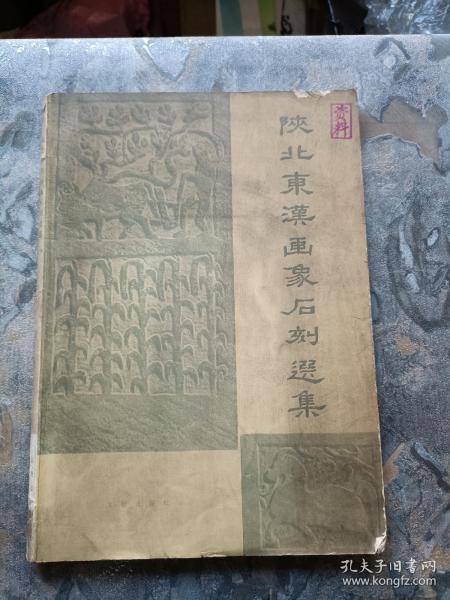 陝北東漢画象石刻選集
资料
孔夫子旧书网
www.kongfz.com